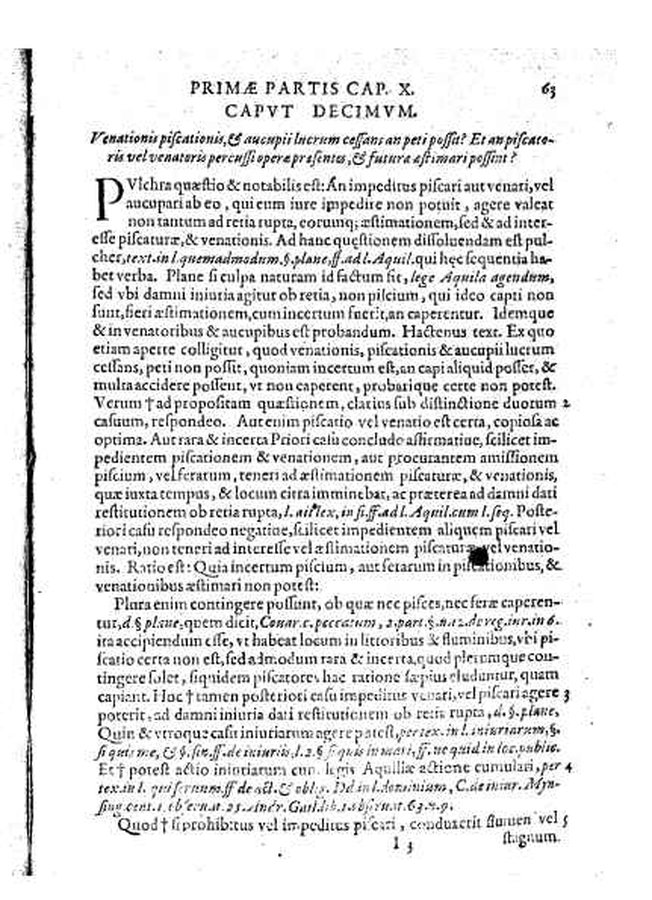 PRIMÆ PARTIS CAP. X. 63
CAPVT DECIMVM.
Venationis piscationis, & aucupii lucrum cessans an peti possit? Et an piscato-
ris vel venatoris percussi operæ præsentes, & futuræ æstimari possint?
PVlchra quæstio & notabilis est: An impeditus piscari aut venari, vel
aucupari ab eo, qui eum iure impedire non potuit, agere valeat
non tantum ad retia rupta, eorumq; æstimationem, sed & ad inter-
esse piscaturæ, & venationis. Ad hanc quęstionem dissoluendam est pul-
cher, text. in l. quemadmodum. §. plane, ff. ad l. Aquil. qui hęc sequentia ha-
bet verba. Plane si culpa nautarum id factum sit, lege Aquilia agendum,
sed vbi damni iniuria agitur ob retia, non piscium, qui ideo capti non
sunt, fieri æstimationem, cum incertum fuerit, an caperentur. Idemque
& in venatoribus & aucupibus est probandum. Hactenus text. Ex quo
etiam aperte colligitur, quod venationis, piscationis & aucupii lucrum
cessans, peti non possit, quoniam incertum est, an capi aliquid posset, &
multa accidere possent, vt non caperent, probarique certe non potest.
Verum † ad propositam quæstionem, clarius sub distinctione duorum 2
casuum, respondeo. Aut enim piscatio vel venatio est certa, copiosa ac
optima. Aut rara & incerta Priori casu concludo affirmatiue, scilicet im-
pedientem piscationem & venationem, aut procurantem amissionem
piscium, vel ferarum, teneri ad æstimationem piscaturæ, & venationis,
quæ iuxta tempus, & locum citra imminebat, ac præterea ad damni dati
restitutionem ob retia rupta, l. ait lex, in fi. ff. ad l. Aquil. cum l. seq. Poste-
riori casu respondeo negatiue, scilicet impedientem aliquem piscari vel
venari, non teneri ad interesse vel æstimationem piscaturæ vel venatio-
nis. Ratio est: Quia incertum piscium, aut ferarum in piscationibus, &
venationibus æstimari non potest:
Plura enim contingere possunt, ob quæ nec pisces, nec feræ caperen-
tur, d. § plane, quem dicit, Couar. c. peccatum, 2. part. §. n. 12. de reg. iur. in 6.
ita accipiendum esse, vt habeat locum in littoribus & fluminibus, vbi pi-
scatio certa non est, sed admodum rara & incerta, quod plerumque con-
tingere solet, siquidem piscatores hac ratione sæpius eluduntur, quam
capiant. Hoc † tamen posteriori casu impeditus venari, vel piscari agere 3
poterit, ad damni iniuria dati restitutionem ob retia rupta, d. §. plane,
Quin & vtroque casu iniutiarum agere potest, per tex. in l. iniuriarum, §.
si quis me, & §. fin. ff. de iniuriis, l. 2. § si quis in mari, ff. ne quid in loc. public.
Et † potest actio iniuriarum cum legis Aquiliæ actione cumulari, per 4
tex. in l. qui seruum. ff de act. & oblig. Dd in l. dominium, C. de iniur. Myn-
sing. cent. 1. obseruat. 25. Andr. Gail. lib. 1. obseruat. 63. n. 9.
Quod † si prohibitus vel impeditus piscari, conduxerit flumen vel 5
I 3 stagnum.